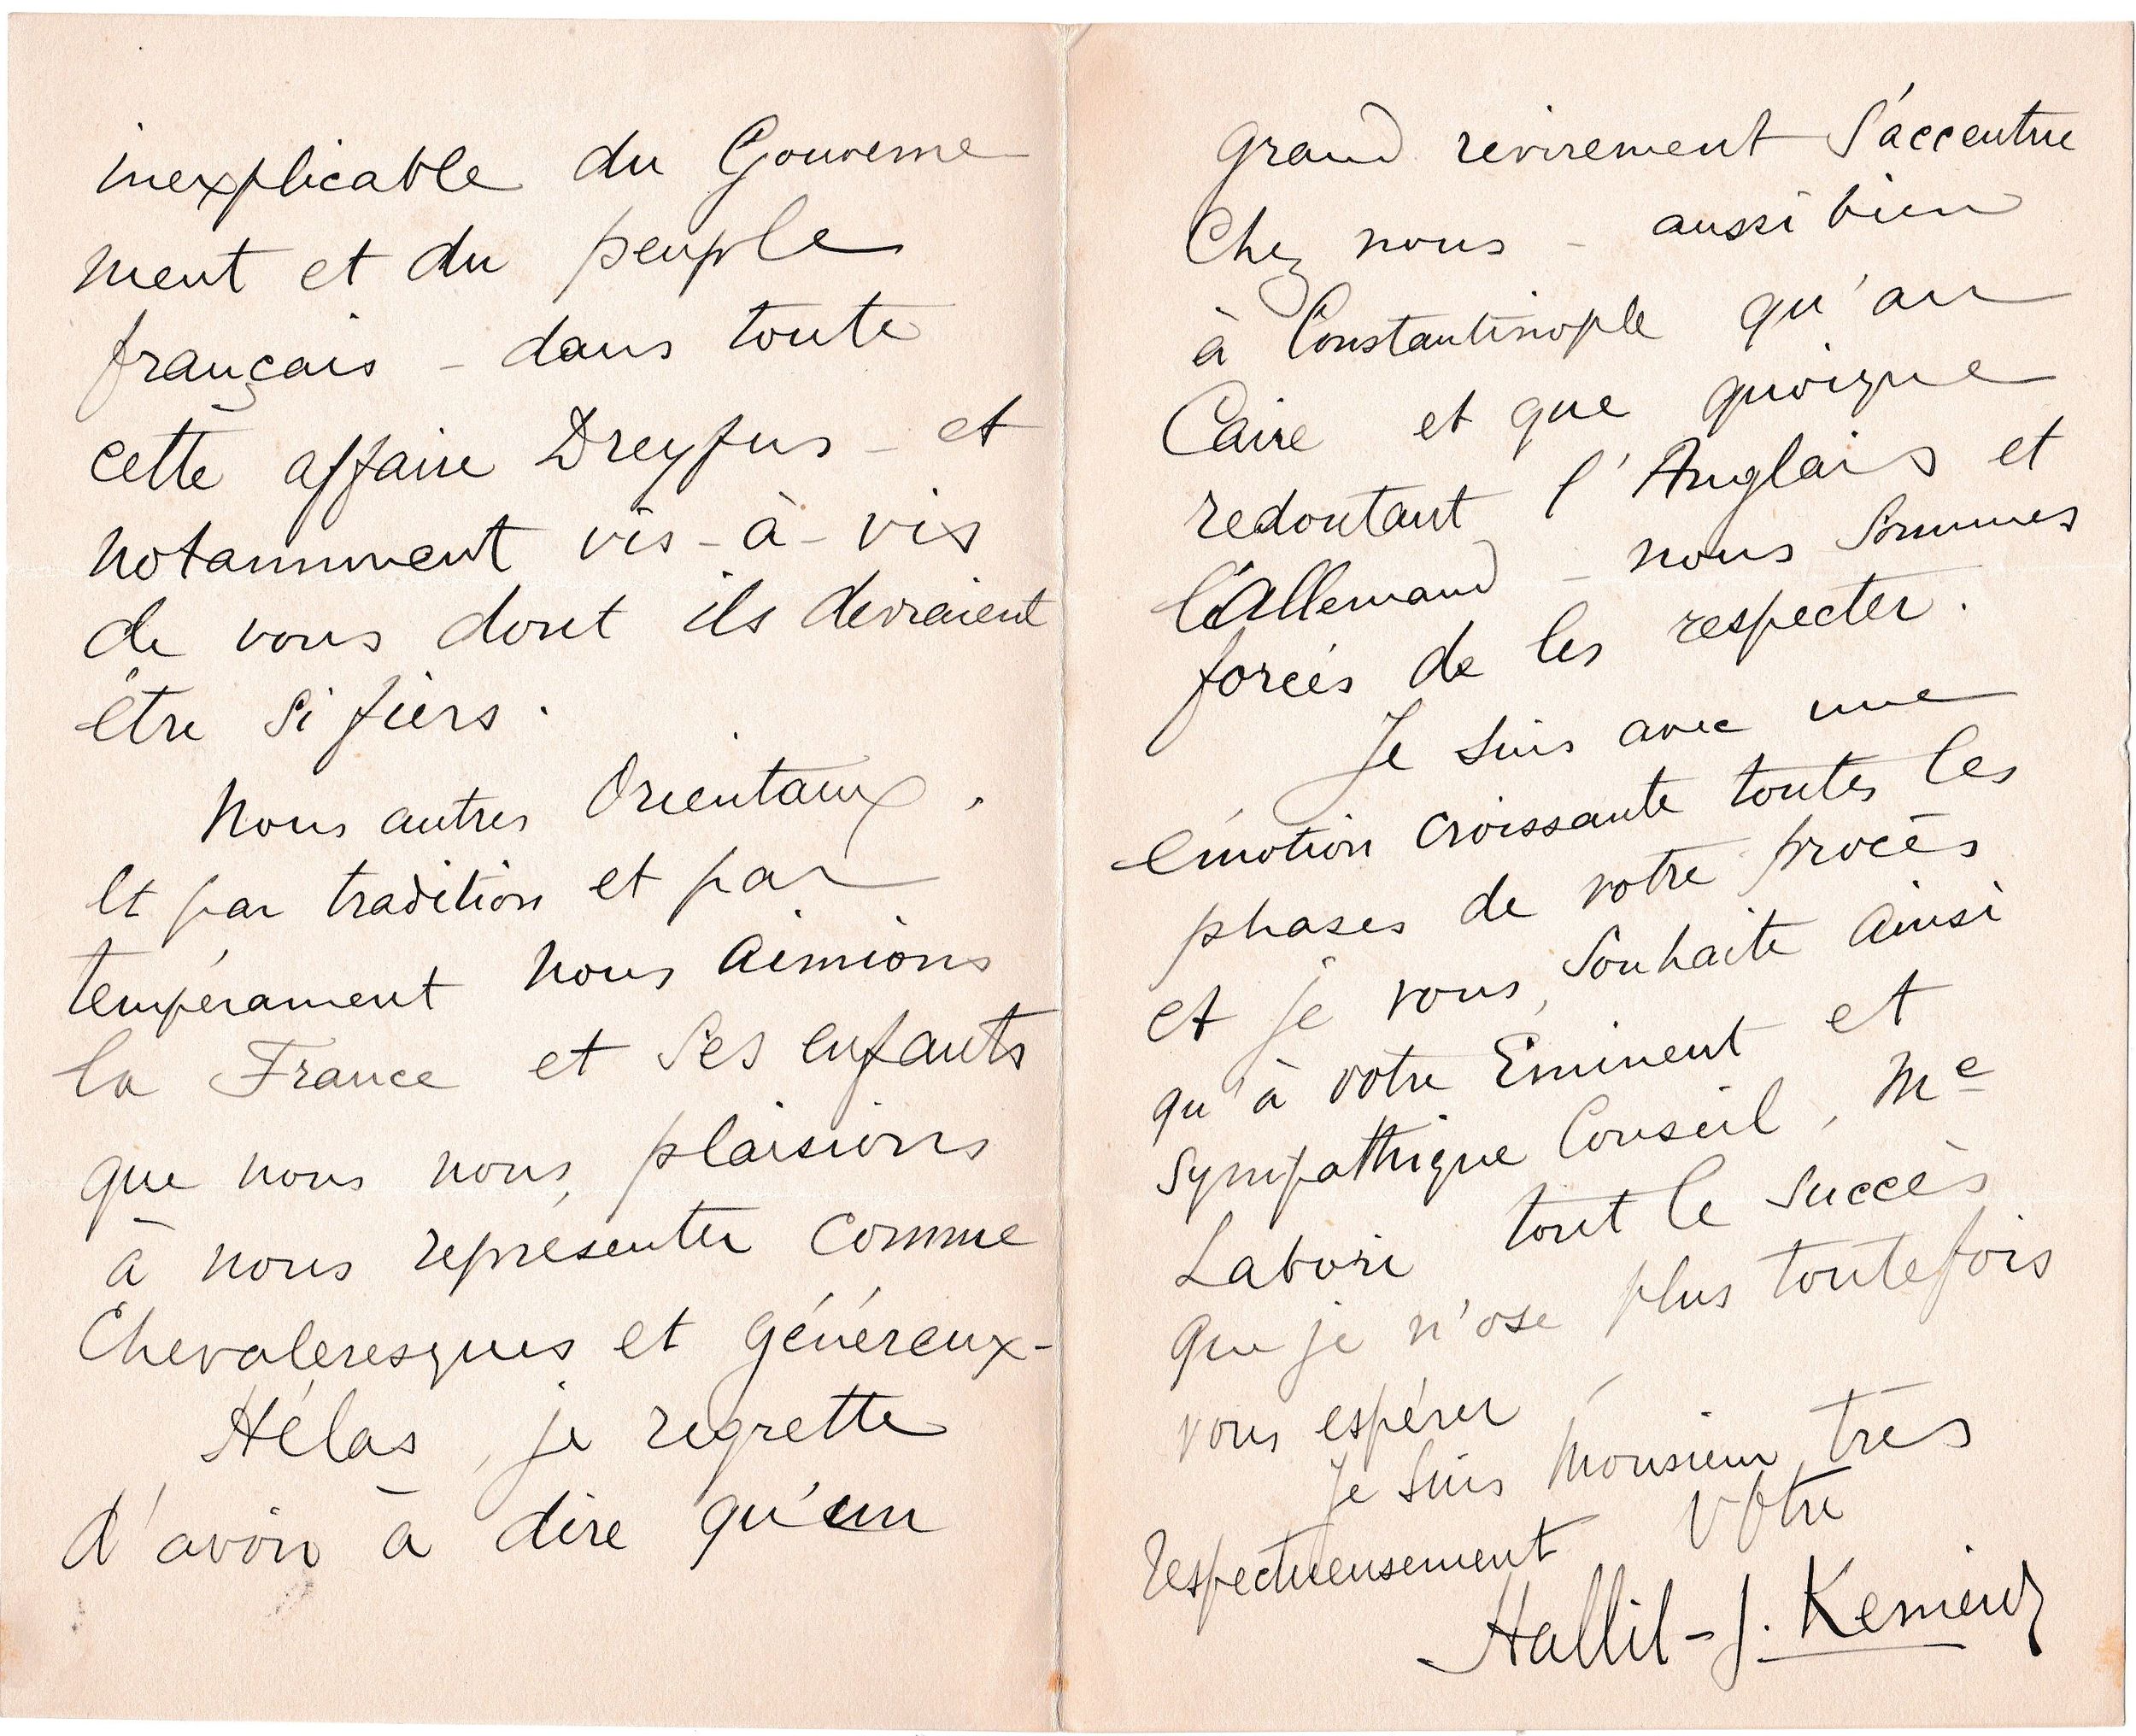 inexplicable du Gouverne
ment et du peuple
français - dans toute
cette affaire Dreyfus - et
notamment vis-à-vis
de vous dont ils devraient
être si fiers.
Nous autres Orientaux,
et par tradition et par
tempérament nous aimions
la France et ses enfants
que nous nous plaisions
à nous représenter comme
Chevaleresques et généreux-
Hélas, je regrette
d'avoir à dire qu'un
grand revirement s'accentue
Chez nous - aussi bien
à Constantinople qu'au
Caire et que quoique
redoutant l'Anglais et
l'Allemand - nous sommes
forcés de les respecter.
Je suis avec une
émotion croissante toutes les
phases de votre procès
et je vous souhaite ainsi
qu'à votre Eminent et
sympathique Conseil, Me
Labori tout le succès
que je n'ose plus toutefois
vous espérer
Je suis Monsieur très
respectueusement vôtre
Hallil-J.